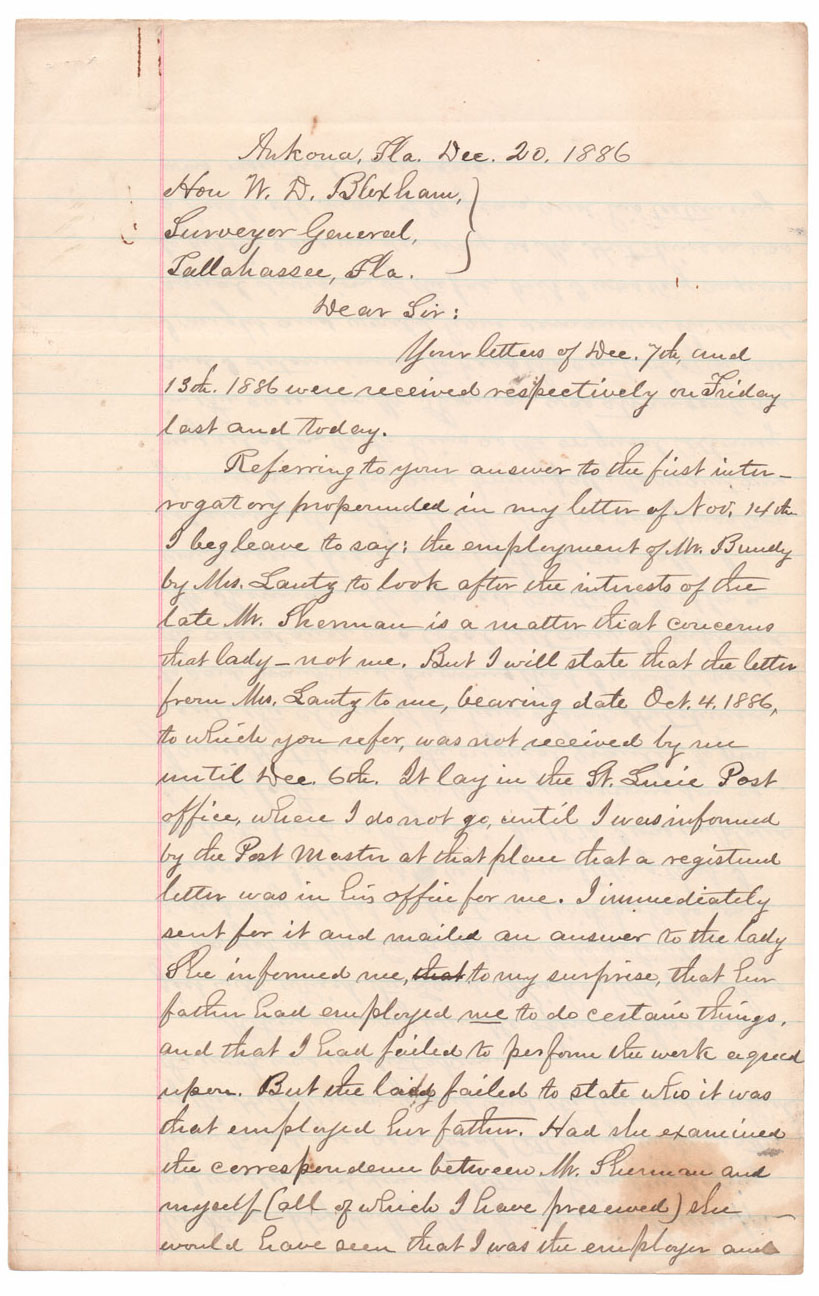 Ankona, Fla. Dec. 20, 1886
Hon W. D. Bloxham,
Surveyor General,
Tallahassee, Fla.
Dear Sir:
Your letters of Dec. 7th, and
13th. 1886 were received respectively on Friday
last and today.
Referring to your answer to the first inter-
rogatory propounded in my letter of Nov. 14th
I beg leave to say: the employment of Mr. Bundy
by Mrs. Lantz to look after the interests of the
late Mr. Sherman is a matter that concerns
that lady - not me. But I will state that the letter
from Mrs. Lantz to me, bearing date Oct. 4. 1886,
to which you refer, was not received by me
until Dec. 6th. It lay in the St. Lucie Post
office, where I do not go, until I was informed
by the Post Master at that place that a registered
letter was in his office for me. I immediately
sent for it and mailed an answer to the lady
She informed me, that to my surprise, that her
father had employed me to do certain things,
and that I had failed to perform the work agreed
upon. But the lady failed to state who it was
that employed her father. Had she examined
the correspondence between Mr. Sherman and
myself (all of which I have preserved) she
would have seen that I was the employer and